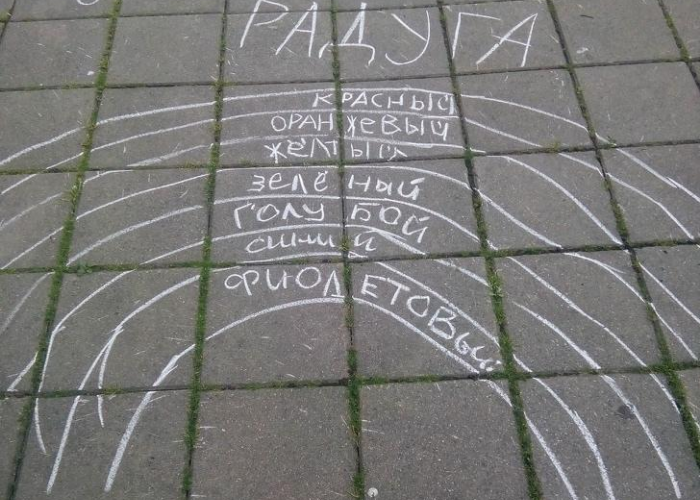 РАДУГА
КРАСНЫЙ
ОРАНЖЕВЫЙ
ЖЁЛТЫЙ
ЗЕЛЁНЫЙ
ГОЛУБОЙ
СИНИЙ
ФИОЛЕТОВЫЙ